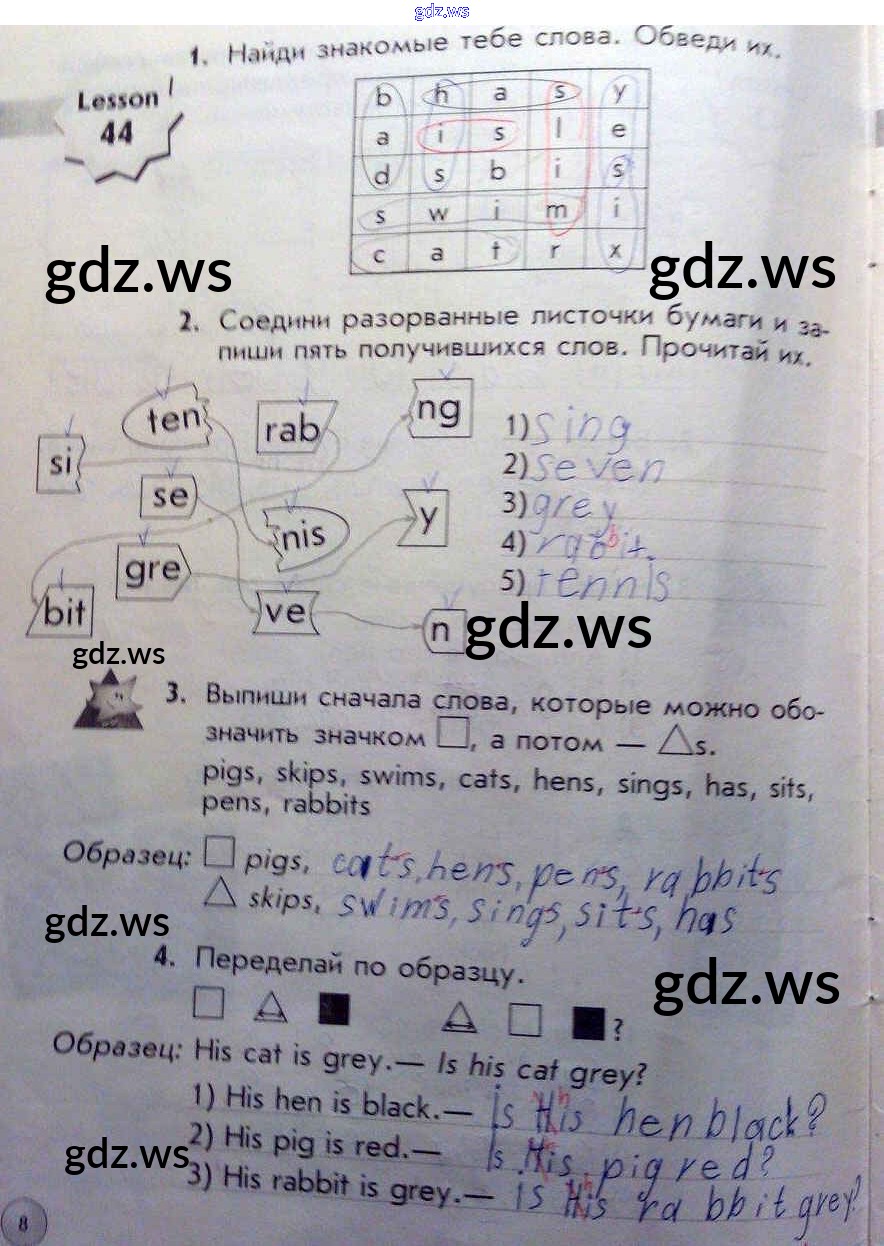 gdz.ws
1. Найди знакомые тебе слова. Обведи их.
Lesson
44
b h a s y
a i s l e
d s b i s
s w i m i
c a t r x
gdz.ws
gdz.ws
2. Соедини разорванные листочки бумаги и за-
пиши пять получившихся слов. Прочитай их.
ten
rab
ng
si
se
nis
y
gre
bit
ve
n
1) sing
2) seven
3) grey
4) rabbit.
5) tennis
gdz.ws
gdz.ws
3. Выпиши сначала слова, которые можно обо-
значить значком □, а потом — △s.
pigs, skips, swims, cats, hens, sings, has, sits,
pens, rabbits
Образец: □ pigs, cats, hens, pens, rabbits
△ skips, swims, sings, sits, has
gdz.ws
4. Переделай по образцу.
gdz.ws
?
Образец: His cat is grey.— Is his cat grey?
1) His hen is black.— is his hen black?
2) His pig is red.— Is his pig red?
gdz.ws
3) His rabbit is grey.— is his rabbit grey?
8